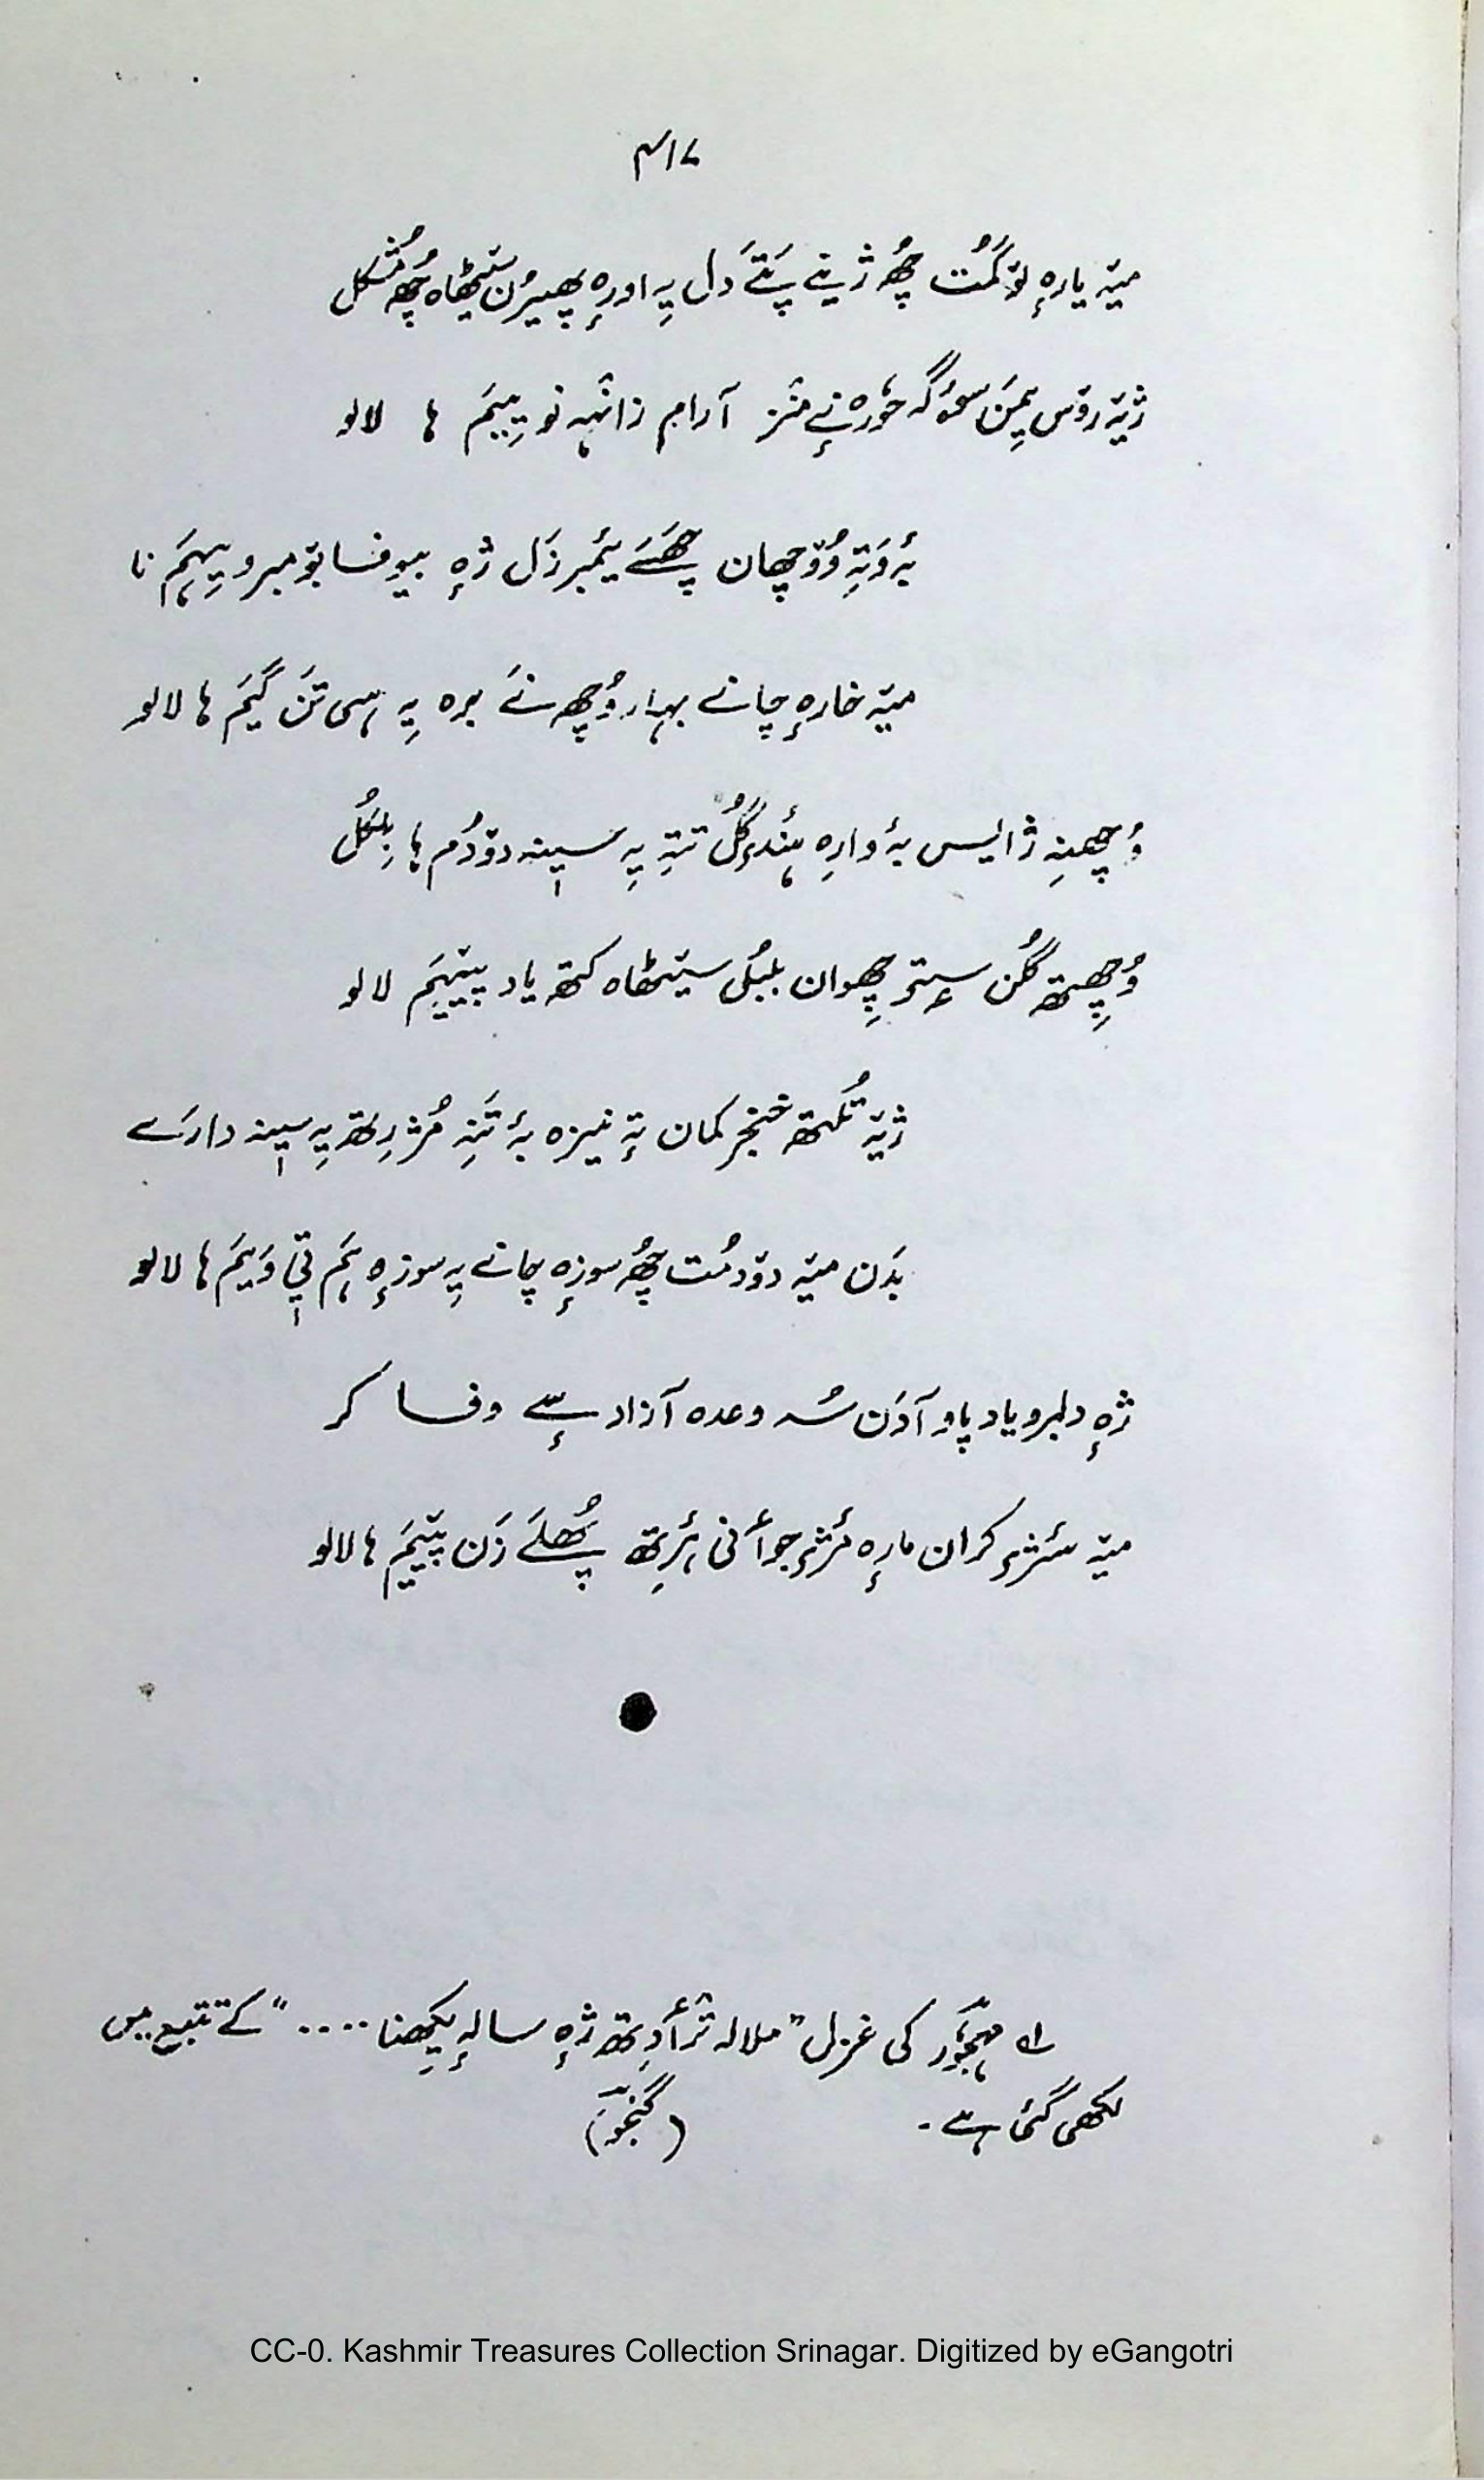 ۴۱۷
میٚہ یارہٕ لوٚگمُت چھُ ژینے پَتَے دل یہِ اورہٕ پھیرُن سیٚٹھاہ چھُ مُشکل
ژیٚہ روٚس یِمَن سوٚرگہ حوٗرہ نٕے منٛز آرام زانٛہہ نو یِیَم ہا لالو
بہٕ وَتہِ وُوٚچھان چھَسَے یٔمبرزَل ژٕہ بیوفا بوٚمبرو یِہَم نا
میٚہ خارہٕ چانے بہار وُچھ نَے برہ یہِ ہی تَن گیَم ہا لالو
وُچھنہِ ژالیس بہٕ وارِہ ۂندۍ گُل تتہِ یہِ سیٖنہ دوٚدُم ہا بِلکُل
وُچھِتھ گُلن سۭتۍ چھِوان بلبُل سیٚٹھاہ کتھ یاد پیٚیَم لالو
ژیٚہ تُلتھ خنجر کمان تہٕ نیزہ بہٕ تَنہِ مُژرِتھ یہِ سیٖنہ دارَے
بدَن میٚہ دوٚدمُت چھُ سوزہٕ چانے یہِ سوزہٕ ہَم تیٖ وَیَم ہا لالو
ژٕہ دلبرو یاد پاو آدَن سُہ وعدہ آزاد سٕے وفا کر
میٚہ سٔرژ کران مارہٕ مٔژ جوأنی ۂرِتھ پھُلَے زَن پیٚیَم ہا لالو
لہ مہجوٗر کی غزل "ملالہ ترٛأوِتھ ژٕہ سالہٕ یکھنا ...." کے تتبع میں
لکھی گئی ہے۔ (گنجوٗر)
CC-0. Kashmir Treasures Collection Srinagar. Digitized by eGangotri